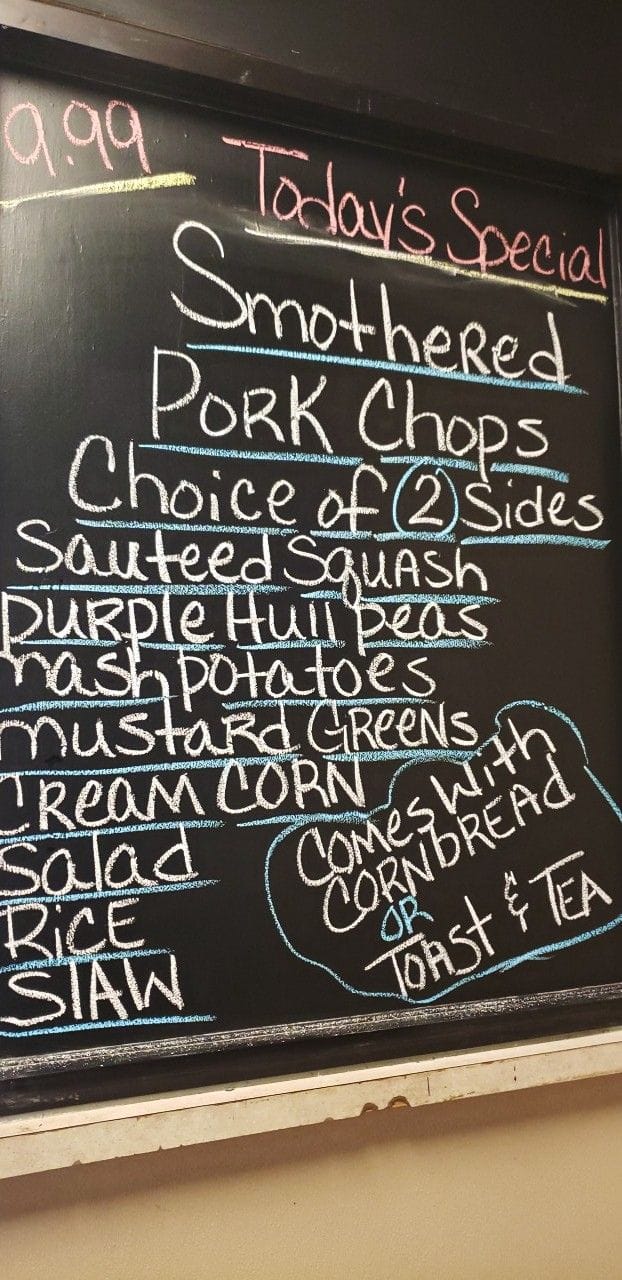 9.99 Today's Special
Smothered
Pork Chops
Choice of 2 Sides
Sauteed Squash
purple Hull peas
mash potatoes
mustard Greens
Cream Corn
Salad
Rice
Slaw
Comes With
Cornbread
OR
Toast & Tea